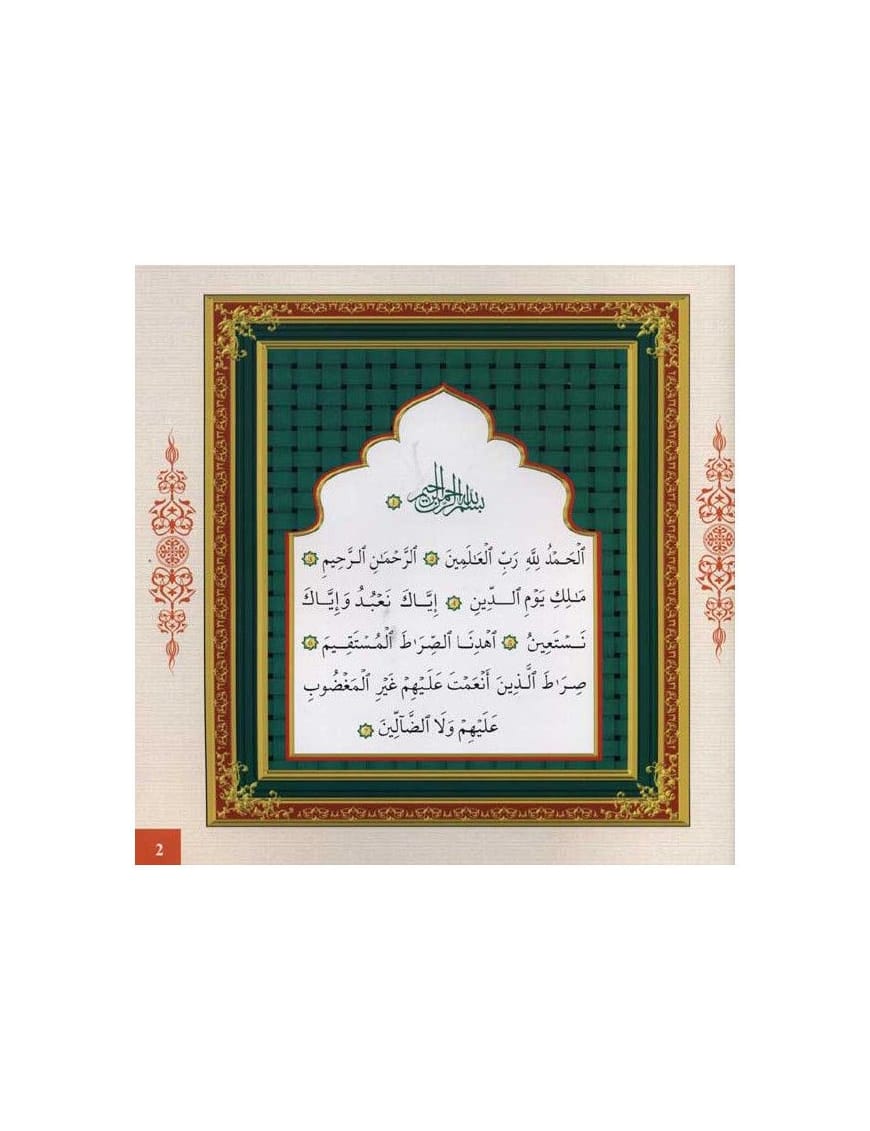 بِسْمِ اللَّهِ الرَّحْمَٰنِ الرَّحِيمِ ١
ٱلْحَمْدُ لِلَّهِ رَبِّ ٱلْعَٰلَمِينَ ٢ ٱلرَّحْمَٰنِ ٱلرَّحِيمِ ٣
مَٰلِكِ يَوْمِ ٱلدِّينِ ٤ إِيَّاكَ نَعْبُدُ وَإِيَّاكَ
نَسْتَعِينُ ٥ ٱهْدِنَا ٱلصِّرَٰطَ ٱلْمُسْتَقِيمَ ٦
صِرَٰطَ ٱلَّذِينَ أَنْعَمْتَ عَلَيْهِمْ غَيْرِ ٱلْمَغْضُوبِ
عَلَيْهِمْ وَلَا ٱلضَّآلِّينَ ٧
2